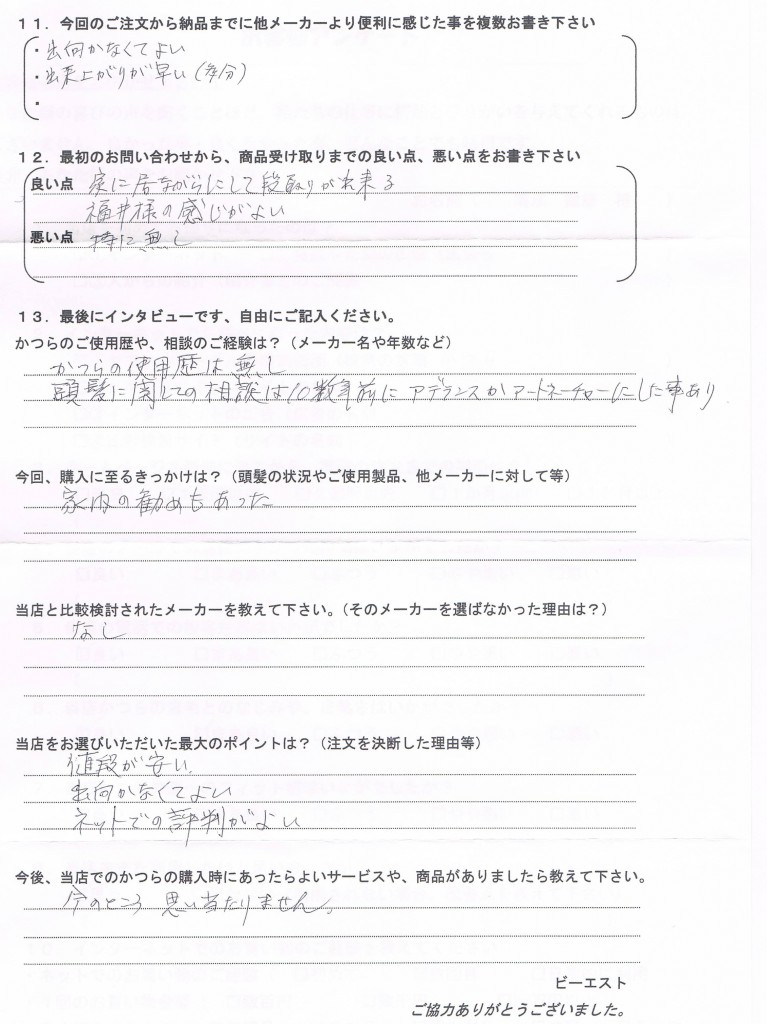 11．今回のご注文から納品までに他メーカーより便利に感じた事を複数お書き下さい
・出向かなくてよい
・出来上がりが早い（多分）
・
12．最初のお問い合わせから、商品受け取りまでの良い点、悪い点をお書き下さい
良い点 家に居ながらにして段取りが出来る
福井様の感じがよい
悪い点 特に無し
13．最後にインタビューです、自由にご記入ください。
かつらのご使用歴や、相談のご経験は？（メーカー名や年数など）
かつらの使用歴は無し
頭髪に関しての相談は10数年前にアデランスかアートネーチャーにした事あり
今回、購入に至るきっかけは？（頭髪の状況やご使用製品、他メーカーに対して等）
家内の勧めもあった
当店と比較検討されたメーカーを教えて下さい。（そのメーカーを選ばなかった理由は？）
なし
当店をお選びいただいた最大のポイントは？（注文を決断した理由等）
値段が安い
出向かなくてよい
ネットでの評判がよい
今後、当店でのかつらの購入時にあったらよいサービスや、商品がありましたら教えて下さい。
今のところ 思い当たりません。
ビーエスト
ご協力ありがとうございました。